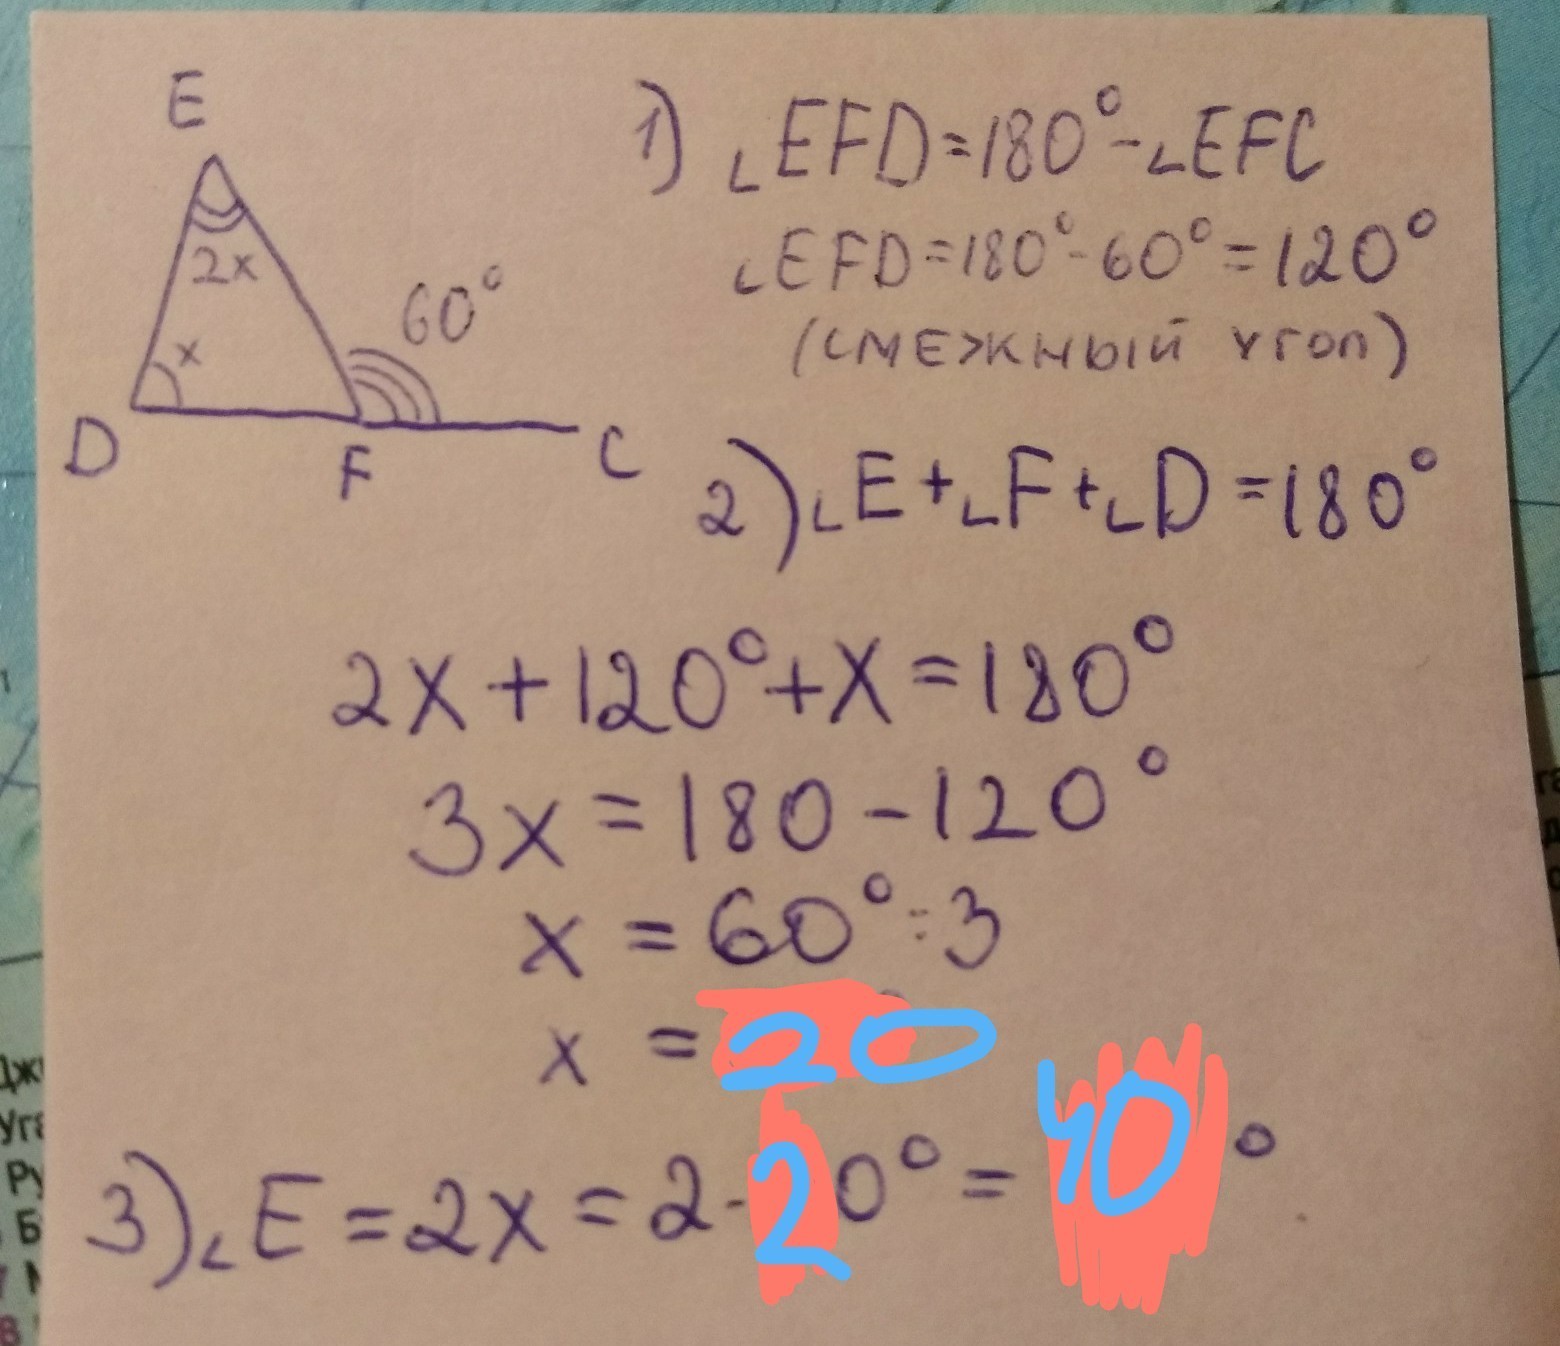 E
1) ∟EFD=180°-∟EFC
2x
60°
∟EFD=180°-60°=120°
x
(смежный угол)
D
F
C
2) ∟E+∟F+∟D=180°
2x+120°+x=180°
3x=180-120°
x=60°:3
x=20
3) ∟E=2x=2·20°=40°
Дж
Уга
Ру
Б